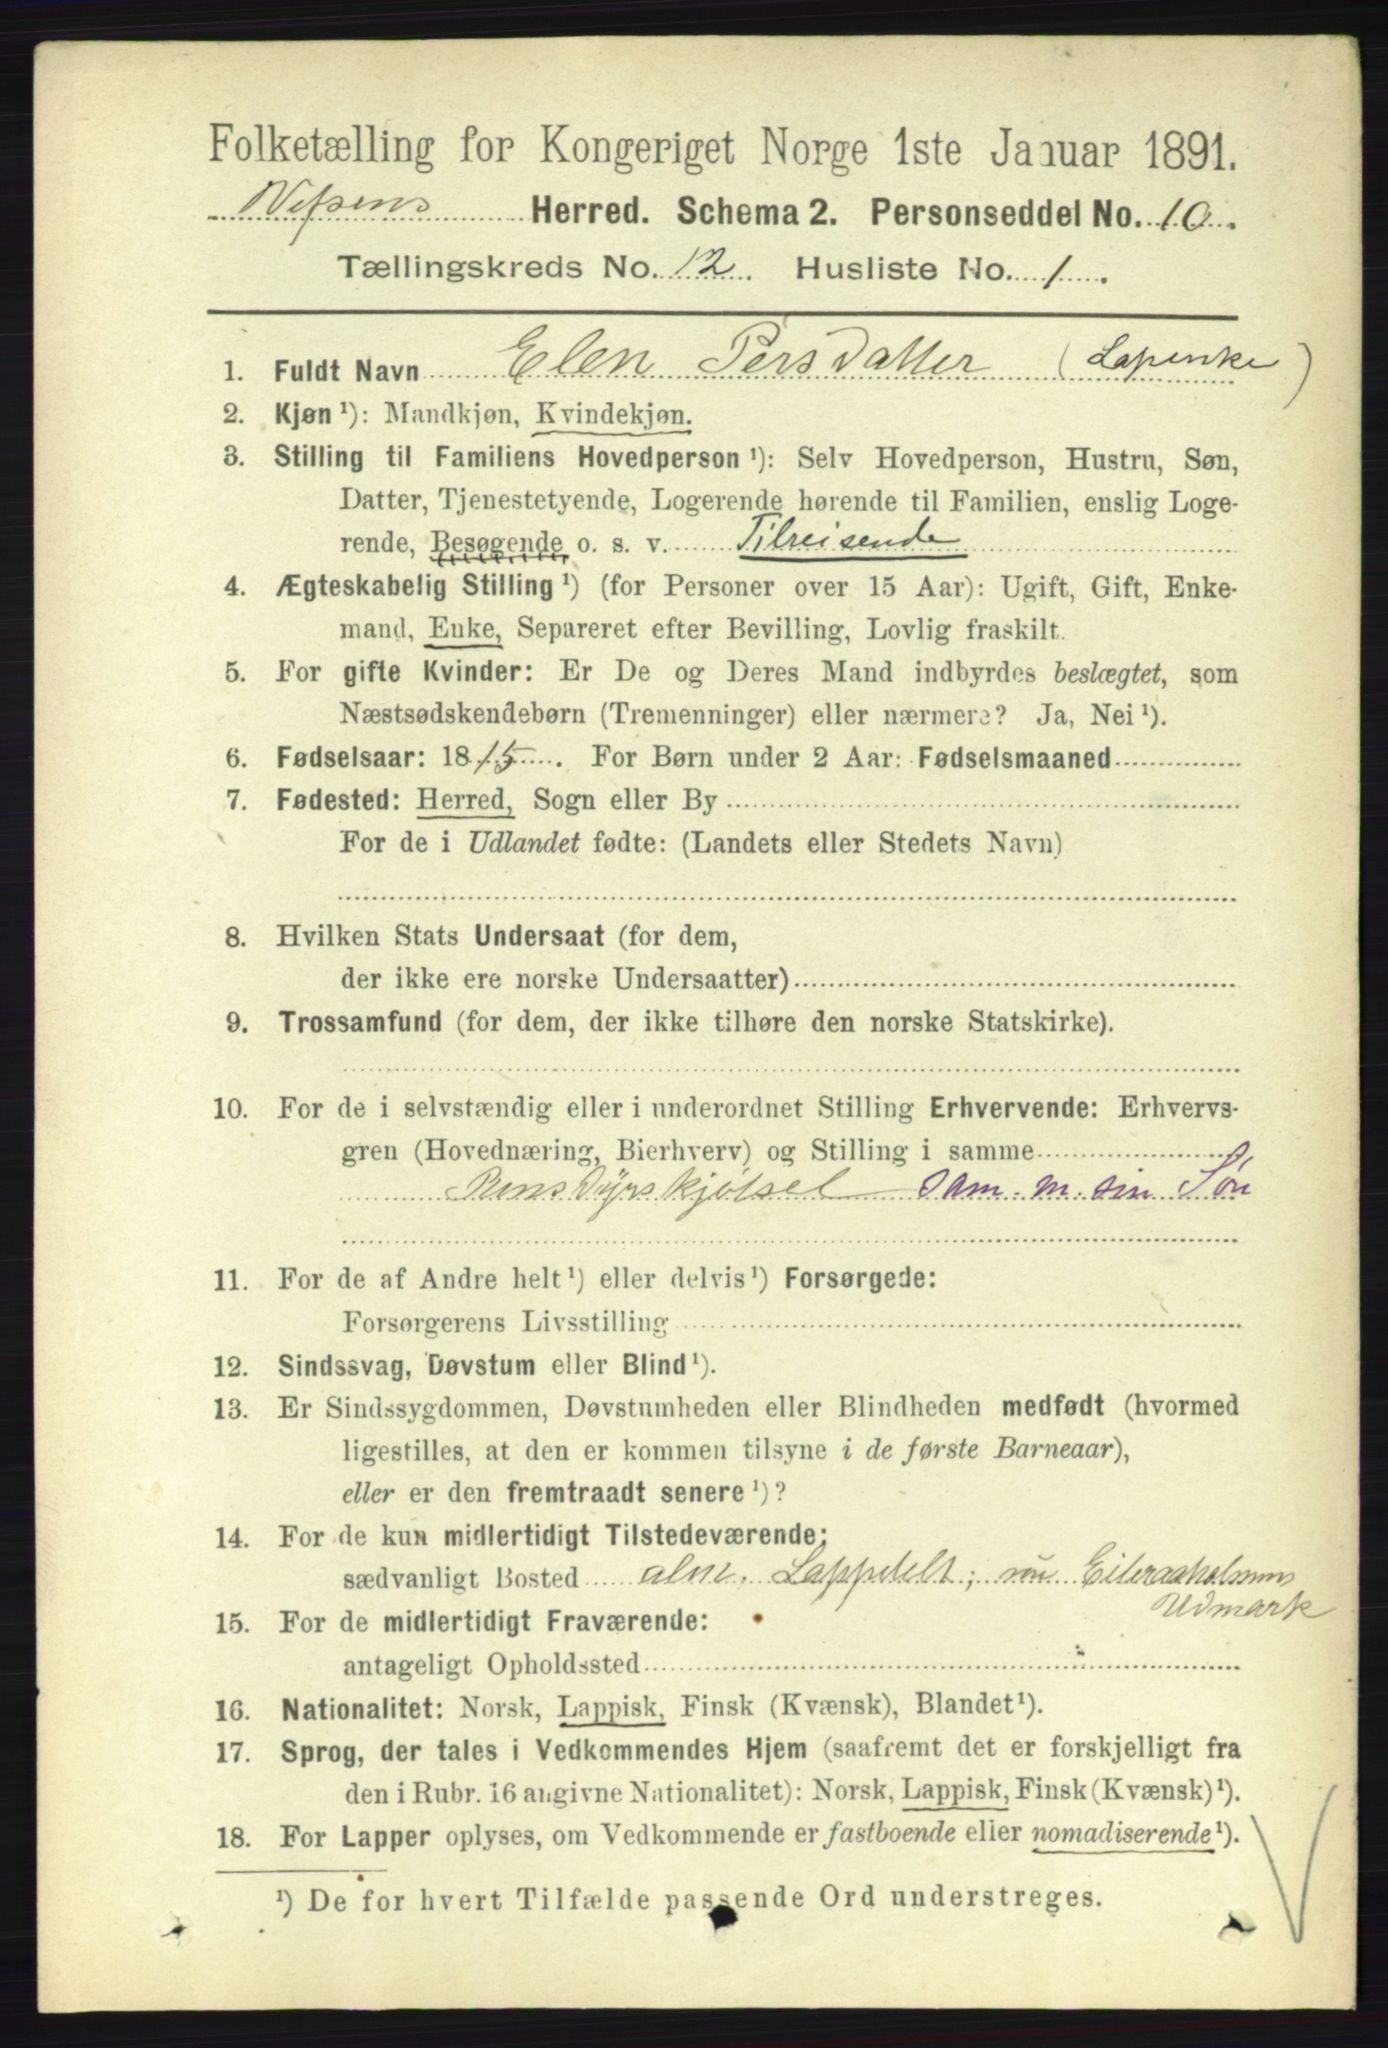 Folketælling for Kongeriget Norge 1ste Januar 1891.
Vefsens Herred. Schema 2. Personseddel No. 10.
Tællingskreds No. 12. Husliste No. 1.
1. Fuldt Navn Elen Persdatter (Lapenke)
2. Kjøn ¹): Mandkjøn, Kvindekjøn.
3. Stilling til Familiens Hovedperson ¹): Selv Hovedperson, Hustru, Søn,
Datter, Tjenestetyende, Logerende hørende til Familien, enslig Loge-
rende, Besøgende o. s. v. Tilreisende
4. Ægteskabelig Stilling ¹) (for Personer over 15 Aar): Ugift, Gift, Enke-
mand, Enke, Separeret efter Bevilling, Lovlig fraskilt.
5. For gifte Kvinder: Er De og Deres Mand indbyrdes beslægtet, som
Næstsødskendebørn (Tremenninger) eller nærmere? Ja, Nei ¹).
6. Fødselsaar: 1815. For Børn under 2 Aar: Fødselsmaaned
7. Fødested: Herred, Sogn eller By
For de i Udlandet fødte: (Landets eller Stedets Navn)
8. Hvilken Stats Undersaat (for dem,
der ikke ere norske Undersaatter)
9. Trossamfund (for dem, der ikke tilhøre den norske Statskirke).
10. For de i selvstændig eller i underordnet Stilling Erhvervende: Erhvervs-
gren (Hovednæring, Bierhverv) og Stilling i samme
Rensdyrskjötsel sam. m. sin Søn
11. For de af Andre helt ¹) eller delvis ¹) Forsørgede:
Forsørgerens Livsstilling
12. Sindssvag, Døvstum eller Blind ¹).
13. Er Sindssygdommen, Døvstumheden eller Blindheden medfødt (hvormed
ligestilles, at den er kommen tilsyne i de første Barneaar),
eller er den fremtraadt senere ¹)?
14. For de kun midlertidigt Tilstedeværende:
sædvanligt Bosted alm. Lappdelt; nu
Udmark
15. For de midlertidigt Fraværende:
antageligt Opholdssted
16. Nationalitet: Norsk, Lappisk, Finsk (Kvænsk), Blandet ¹).
17. Sprog, der tales i Vedkommendes Hjem (saafremt det er forskjelligt fra
den i Rubr. 16 angivne Nationalitet): Norsk, Lappisk, Finsk (Kvænsk) ¹).
18. For Lapper oplyses, om Vedkommende er fastboende eller nomadiserende ¹).
¹) De for hvert Tilfælde passende Ord understreges.